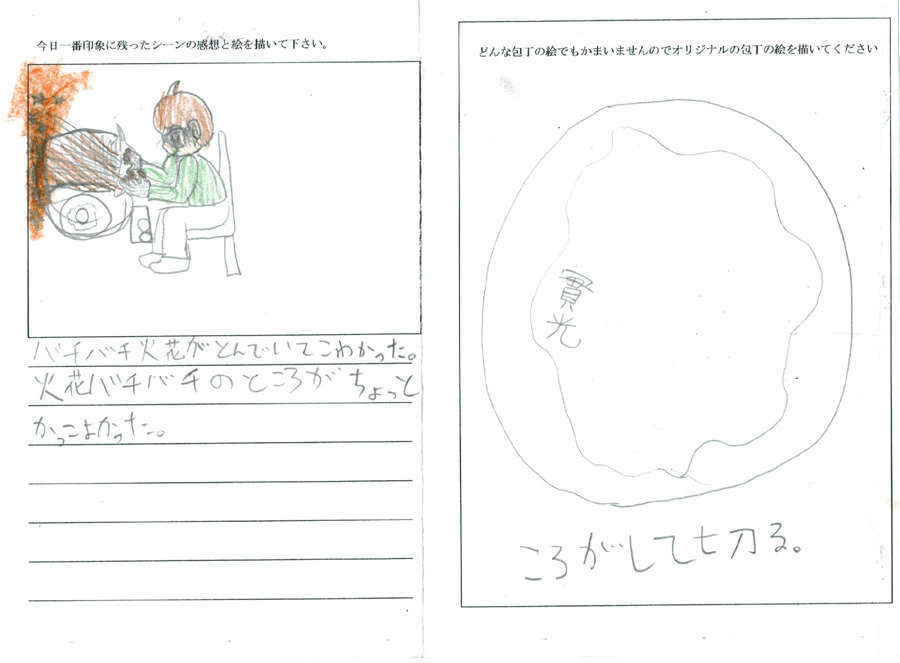 今日一番印象に残ったシーンの感想と絵を描いて下さい。
バチバチ火花がとんでいてこわかった。
火花バチバチのところがちょっと
かっこよかった。
どんな包丁の絵でもかまいませんのでオリジナルの包丁の絵を描いてください
實光
ころがして切る。